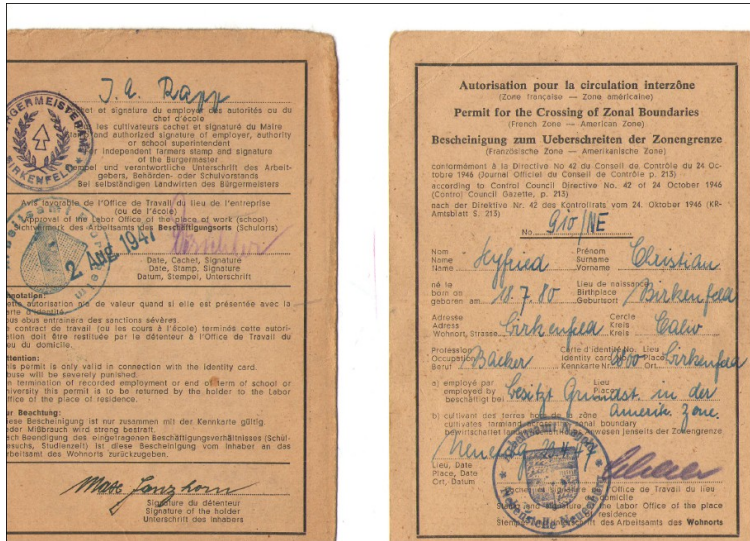 J. A. Rapp
BÜRGERMEISTERAMT
BIRKENFELD
et et signature du employeur des autorités ou du
chef d'école
les cultivateurs cachet et signature du Maire
and authorized signature of employer, authority
or school superintendent
independent farmers stamp and signature
of the Burgermaster
und verantwortliche Unterschrift des Arbeit-
gebers, Behörden- oder Schulvorstands
Bei selbständigen Landwirten des Bürgermeisters
Avis favorable de l'Office de Travail du lieu de l'entreprise
(ou de l'école)
Approval of the Labor Office of the place of work (school)
Sichtvermerk des Arbeitsamts des Beschäftigungsorts (Schulorts)
2. Aug. 1947
Date, Cachet, Signature
Date, Stamp, Signature
Datum, Stempel, Unterschrift
nnotation:
ette autorisation n'a de valeur quand si elle est présentée avec la
arte d'identité.
ous abus entraînera des sanctions sévères.
e contract de travail (ou les cours à l'école) terminés cette autori-
ation doit être restituée par le détenteur à l'Office de Travail du
ieu du domicile.
ttention:
his permit is only valid in connection with the identity card.
buse will be severely punished.
n termination of recorded employment or end of term of school or
niversity this permit is to be returned by the holder to the Labor
ffice of the place of residence.
ur Beachtung:
iese Bescheinigung ist nur zusammen mit der Kennkarte gültig.
eder Mißbrauch wird streng bestraft.
ch Beendigung des eingetragenen Beschäftigungsverhältnisses (Schul-
esuchs, Studienzeit) ist diese Bescheinigung vom Inhaber an das
rbeitsamt des Wohnorts zurückzugeben.
Signature du détenteur
Signature of the holder
Unterschrift des Inhabers
Autorisation pour la circulation interzône
(Zone française — Zone américaine)
Permit for the Crossing of Zonal Boundaries
(French Zone — American Zone)
Bescheinigung zum Ueberschreiten der Zonengrenze
(Französische Zone — Amerikanische Zone)
conformément à la Directive No 42 du Conseil de Contrôle du 24 Oc-
tobre 1946 (Journal Officiel du Conseil de Contrôle p. 213)
according to Control Council Directive No. 42 of 24 October 1946
(Control Council Gazette, p. 213)
nach der Direktive Nr. 42 des Kontrollrats vom 24. Oktober 1946 (KR-
Amtsblatt S. 213)
No. 910/NE
Nom Prénom
Name Surname Christian
Name Vorname
né le Lieu de naissance
born on 18.7.80 Birthplace Birkenfeld
geboren am Geburtsort
Adresse Cercle
Adress Birkenfeld Kreis Calw
Wohnort, Strasse Kreis
Profession Carte d'identité No. Lieu
Occupation Bäcker Identity card Place Birkenfeld
Beruf Kennkarte Nr. Ort
a) employé par Lieu
employed by besitzt Grundst. in der Place
beschäftigt bei amerik. Zone.
b) cultivant des terres hors de la zône
cultivates farmland zonal boundary
bewirtschaftet Anwesen jenseits der Zonengrenze
Lieu, Date
Place, Date
Ort, Datum
Office de Travail du lieu
domicile
Labor Office of the place
residence
des Arbeitsamts des Wohnorts